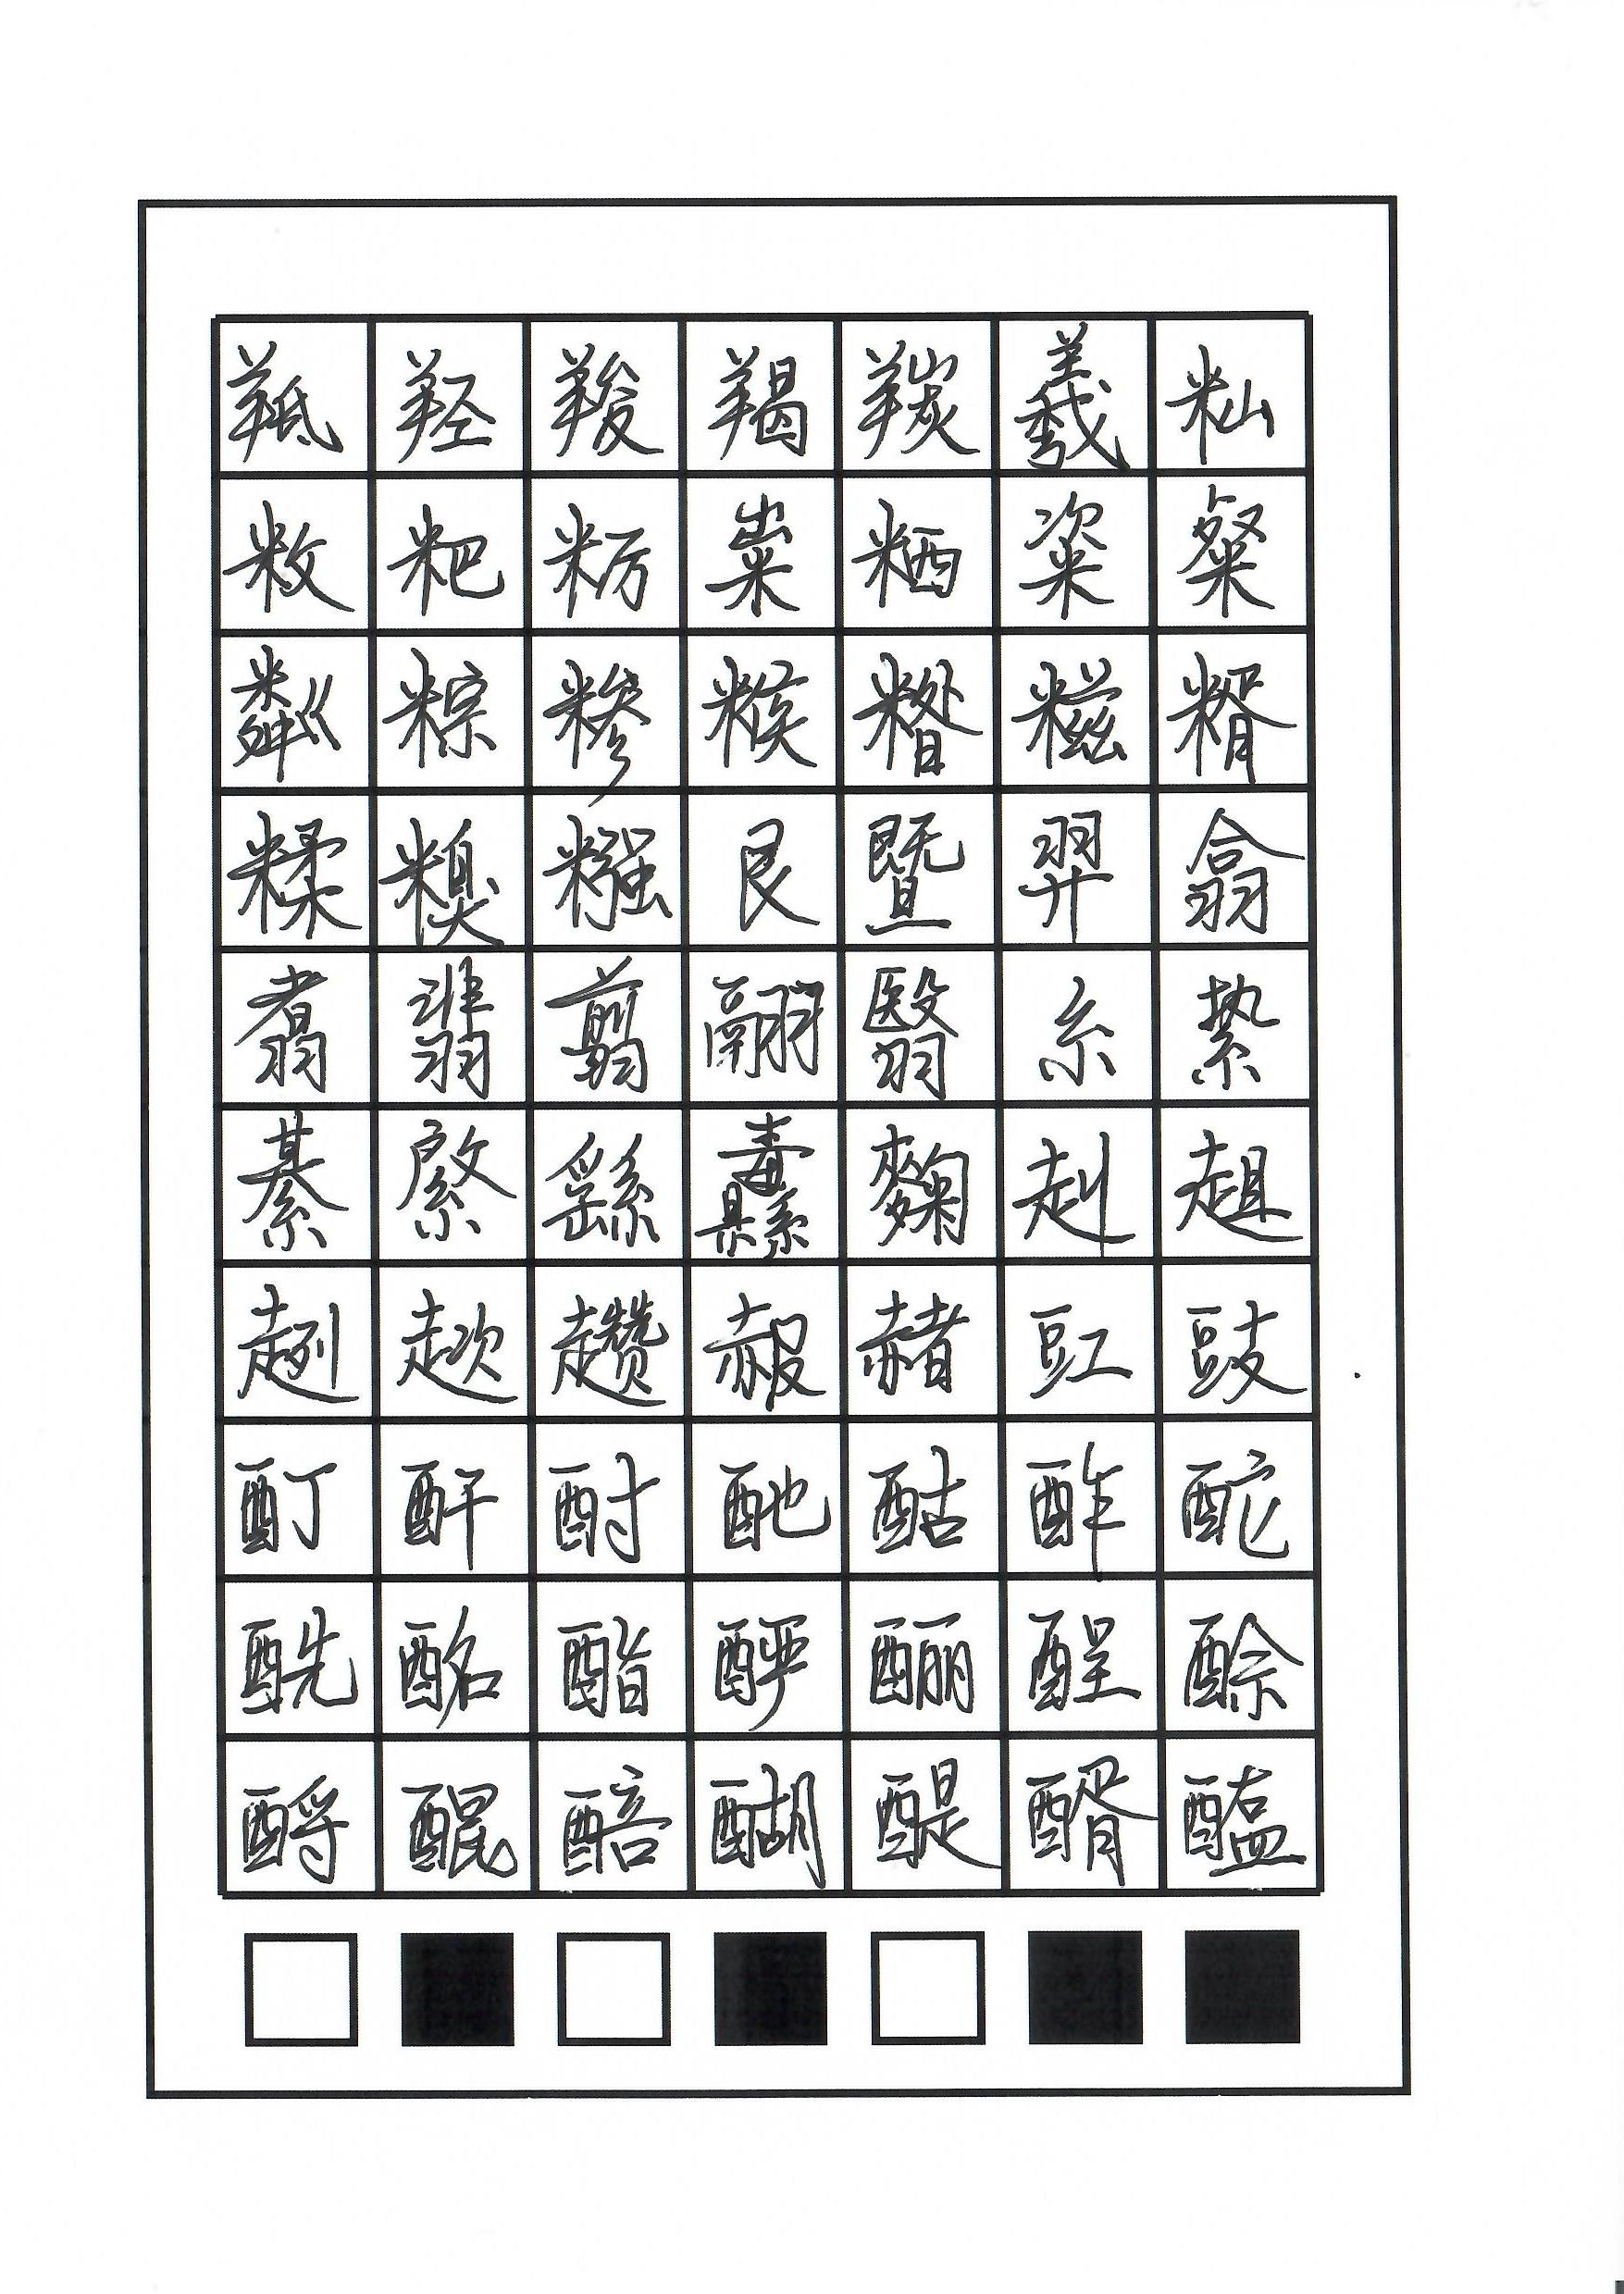 羝羟羧羯羰羲籼
敉粑粝粜粞粢粲
粼粽糁糇糌糍糈
糅糗糨艮暨羿翕
翥翡翦翮翳糸絷
綦綮繇纛麴赳趄
趔趑趱赧赭豇豉
酊酐酎酏酤酢酡
酰酩酯酽酾酲酴
酹醌醅醐醍醑醢